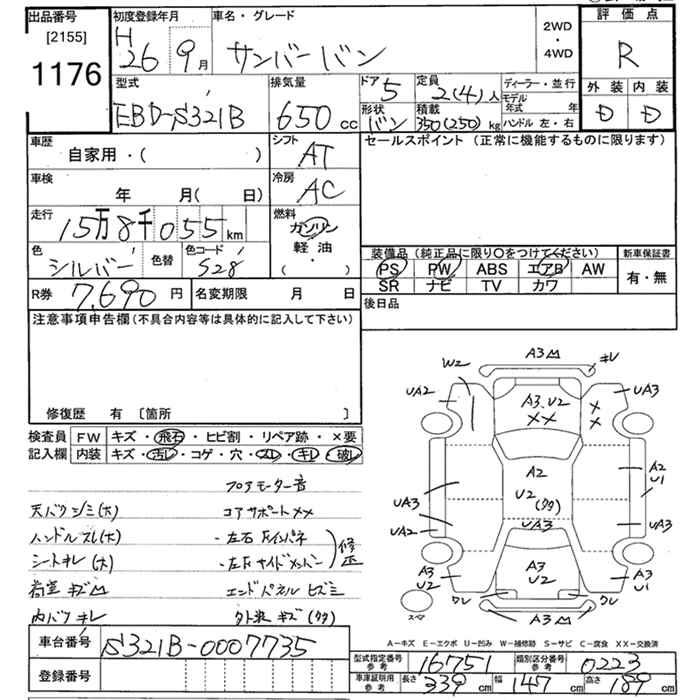 出品番号
[2155]
1176
初度登録年月
H
26 9月
車名・グレード
サンバーバン
2WD
・
4WD
評価点
R
外装 内装
D D
型式
EBD-S321B
排気量
650 cc
ドア 5
形状 バン
定員
2(4)人
積載
350(250)kg
ディーラー・並行
モデル年式 年
ハンドル 左・右
車歴
自家用・( )
シフト
AT
車検
年 月( 日)
冷房
AC
走行
15万8千055km
燃料
ガソリン
軽油
・( )
色
シルバー
色替
色コード
S28
R券 7,690 円
名変期限 月 日
セールスポイント (正常に機能するものに限ります)
装備品 (純正品に限り〇をつけてください)
新車保証書
PS PW ABS エアB AW
有・無
SR ナビ TV カワ
後日品
注意事項申告欄(不具合内容等は具体的に記入して下さい)
修復歴 有 [箇所 ]
検査員 FW キズ・飛石・ヒビ割・リペア跡・×要
記入欄 内装 キズ・汚レ・コゲ・穴・スレ・キレ・破レ
プロアモーター音
天バリシミ(大) コアサポートXX
ハンドルスレ(大) ・左右Fインパネ
シートキレ(大) ・左Fサイドメンバー
修正
荷室キズ凹 エンドパネルヒズミ
内バリキレ 外装キズ(多)
車台番号 S321B-0007735
登録番号
A3凹
W2
キレ
UA2
A3.U2
XX
X
X
UA3
A2
U2
(多)
A2
U1
UA3
UA3
UA3
UA2
A3
U2
A3
U2
A3
U1
ワレ
ワレ
A3凹
スペア
A-キズ E-エクボ U-凹み W-補修跡 S-サビ C-腐食 XX-交換済
型式指定番号 参考 16751
類別区分番号 参考 0223
車庫証明用 参考 長さ 339 cm 幅 147 cm 高さ 189 cm